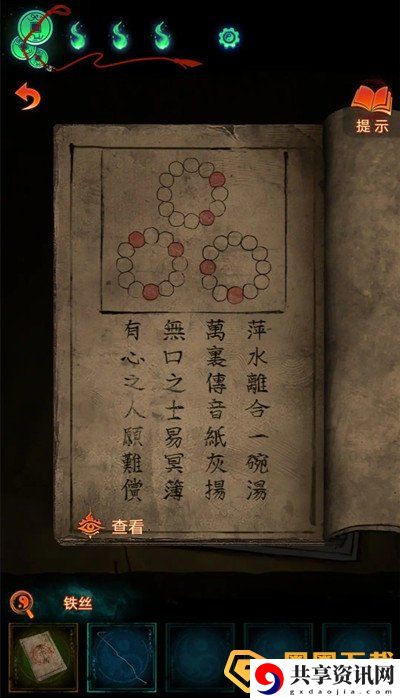 提示
萍水離合一碗湯
萬裏傳音紙灰揚
無口之士易冥簿
有心之人願難償
查看
铁丝
共享资讯网
gxdaojia.com